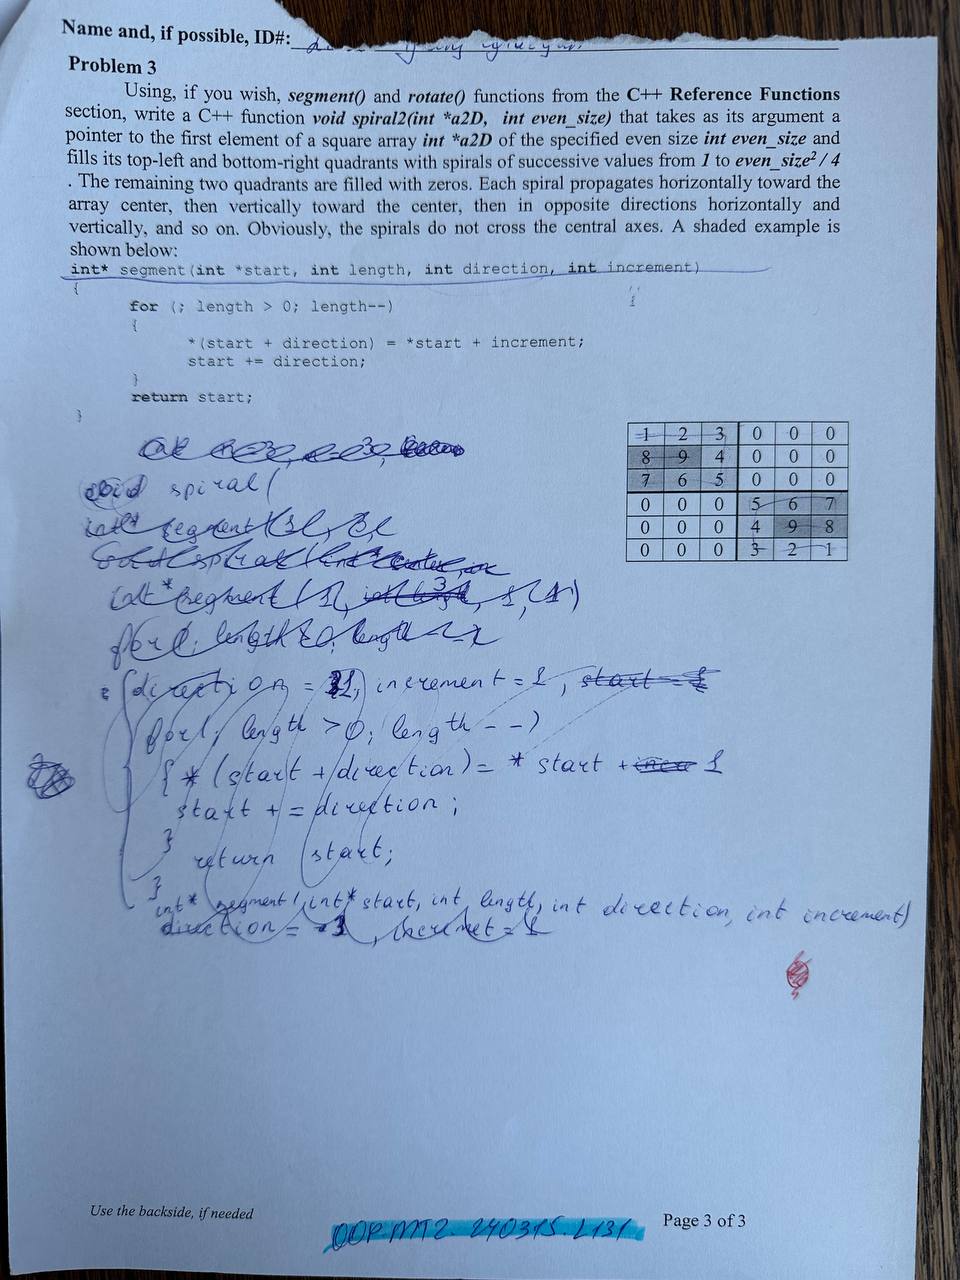 Name and, if possible, ID#:
Problem 3
Using, if you wish, segment() and rotate() functions from the C++ Reference Functions
section, write a C++ function void spiral2(int *a2D, int even_size) that takes as its argument a
pointer to the first element of a square array int *a2D of the specified even size int even_size and
fills its top-left and bottom-right quadrants with spirals of successive values from 1 to even_size² / 4
. The remaining two quadrants are filled with zeros. Each spiral propagates horizontally toward the
array center, then vertically toward the center, then in opposite directions horizontally and
vertically, and so on. Obviously, the spirals do not cross the central axes. A shaded example is
shown below:
int* segment(int *start, int length, int direction, int increment)
{
for (; length > 0; length--)
{
*(start + direction) = *start + increment;
start += direction;
}
return start;
}
1 2 3 0 0 0
8 9 4 0 0 0
7 6 5 0 0 0
0 0 0 5 6 7
0 0 0 4 9 8
0 0 0 3 2 1
void spiral(
int* segment(
int *segment (1, 3, 1, 1)
for (; length > 0; length --
{ direction = 1, increment = 1, start = 1
for(; length > 0; length --)
{ * (start + direction) = * start + 1
start + = direction ;
}
return start;
}
int* segment (int* start, int length, int direction, int increment)
direction = -1, incremet = 1
Use the backside, if needed
OOP.MT2.240315.L131
Page 3 of 3